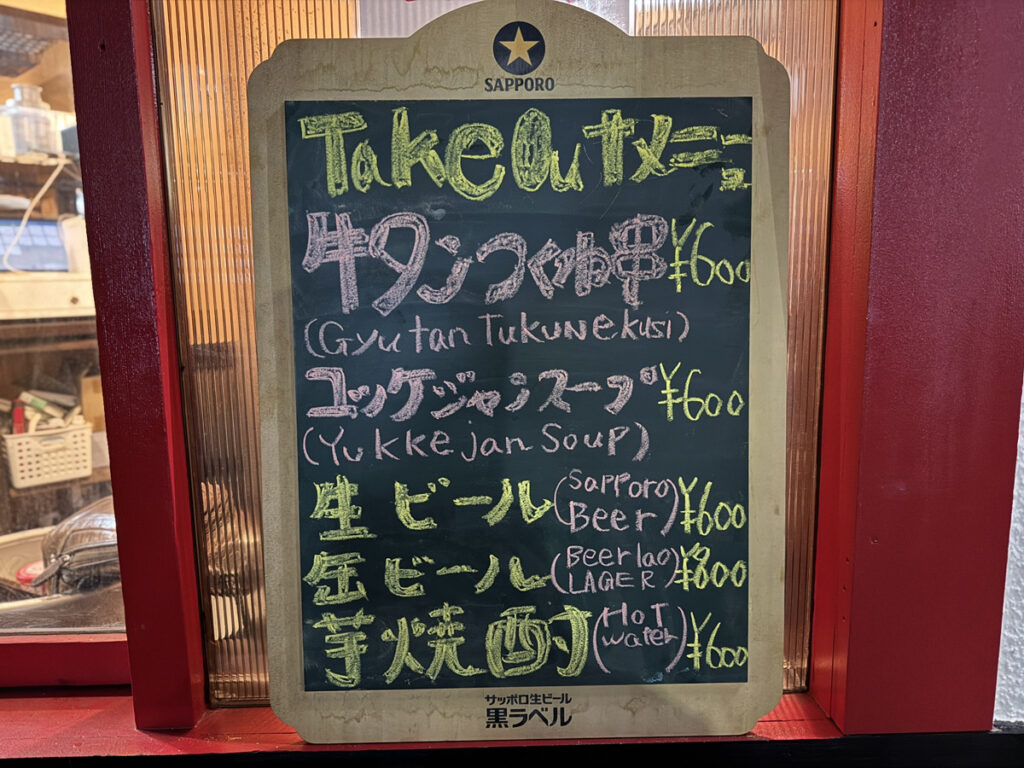 SAPPORO
Take Outメニュー
牛タンつくね串 ¥600
(Gyu tan TukuNekusi)
ユッケジャンスープ ¥600
(Yukke jan Soup)
生ビール (Sapporo Beer) ¥600
缶ビール (Beerlao LAGER) ¥800
芋焼酎 (HoT water) ¥600
サッポロ生ビール
黒ラベル